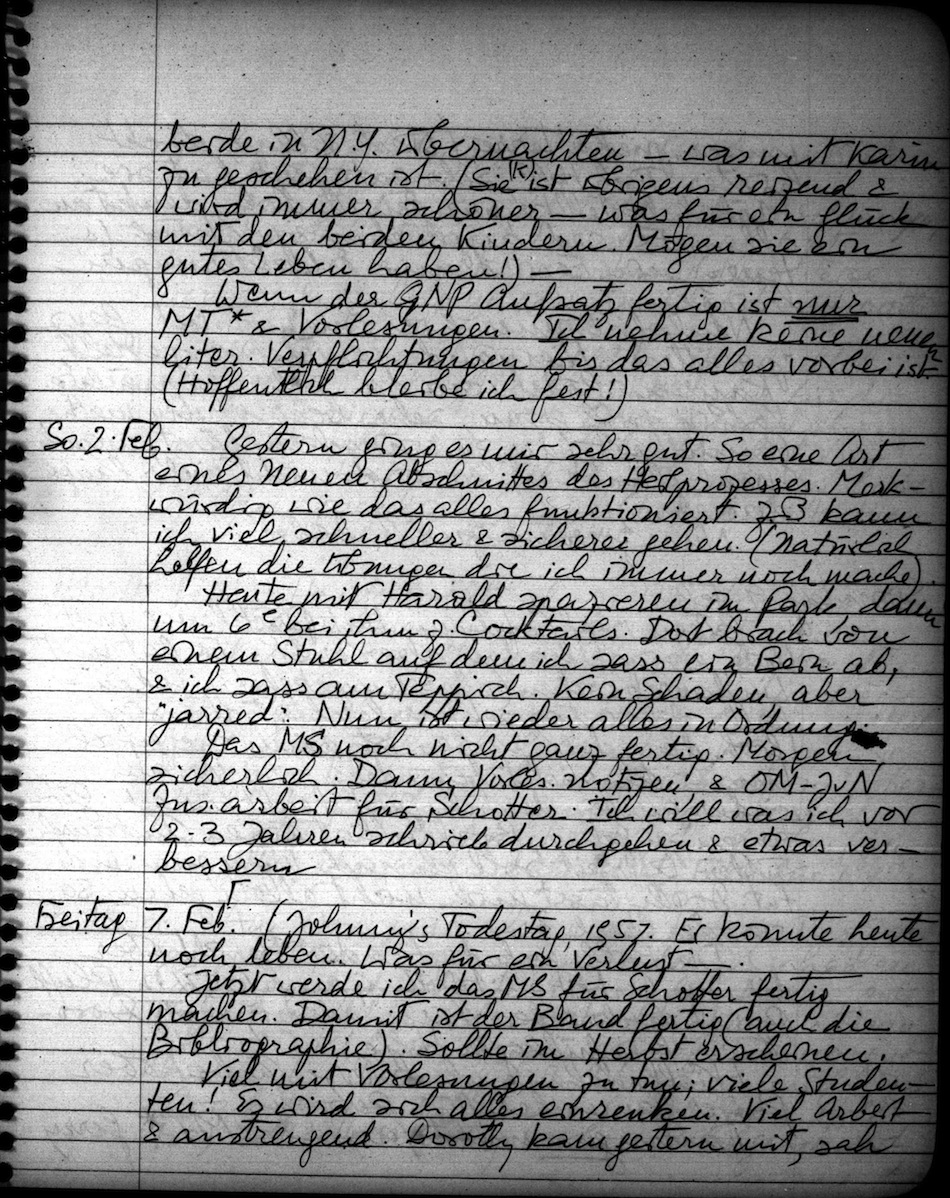 beide in N.Y. übernachten – was mit Karin
zu geschehen ist. (Sie (K) ist übrigens reizend &
wird immer schöner – was für ein Glück
mit den beiden Kindern. Mögen sie ein
gutes Leben haben!) –
Wenn der GNP Aufsatz fertig ist nur
MT* & Vorlesungen. Ich nehme keine neuen
liter. Verpflichtungen bis das alles vorbei ist.
(Hoffentlich bleibe ich fest!)
So. 2. Feb. Gestern ging es mir sehr gut. So eine Art
eines neuen Abschnittes des Heilprozesses. Merk-
würdig wie das alles funktioniert. ZB kann
ich viel schneller & sicherer gehen. (Natürlich
helfen die Übungen die ich immer noch mache).
Heute mit Harold spazieren im Park dann
um 6e bei ihm z. Cocktails. Dort brach von
einem Stuhl auf dem ich sass ein Bein ab,
& ich sass am Teppich. Kein Schaden aber
"jarred". Nun ist wieder alles in Ordnung.
Das MS noch nicht ganz fertig. Morgen
sicherlich. Dann Vorles. notizen & OM-JvN
Zus. arbeit für Schotter. Ich will was ich vor
2-3 Jahren schrieb durchgehen & etwas ver-
bessern
Freitag 7. Feb. (Johnny's Todestag, 1957. Er könnte heute
noch leben. Was für ein Verlust –.
Jetzt werde ich das MS für Schotter fertig
machen. Damit ist der Band fertig (auch die
Bibliographie). Sollte im Herbst erscheinen.
Viel mit Vorlesungen zu tun; viele Studen-
ten! Es wird sich alles einrenken. Viel Arbeit
& anstrengend. Dorothy kam gestern mit, sah